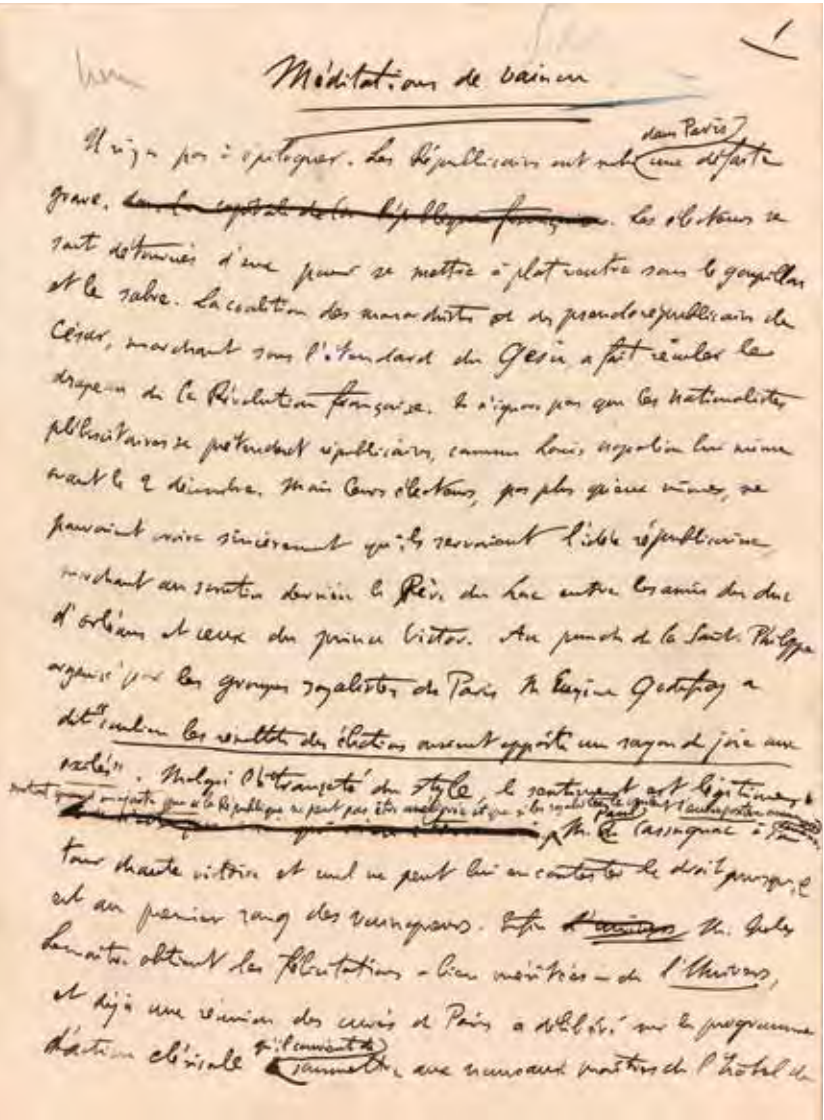 1
Méditations de vaincu
dans Paris
Il n'y a pas à épiloguer. Les Républicains ont subi une défaite
grave. dans la capitale de la République française. Les électeurs se
sont détournés d'eux pour se mettre à plat ventre sous le goupillon
et le sabre. La coalition des monarchistes et des pseudo républicains de
César, marchant sous l'étendard du Gesù, a fait reculer le
drapeau de la Révolution française. Je n'ignore pas que les nationalistes
plébiscitaires se prétendent républicains, comme Louis Napoléon lui même
avant le 2 décembre. Mais leurs électeurs, pas plus qu'eux mêmes, ne
pouvaient croire sincèrement qu'ils servaient l'idée républicaine,
marchant au scrutin derrière le Père du Lac entre les amis du duc
d'Orléans et ceux du prince Victor. Au punch de la Saint-Philippe
organisé par les groupes royalistes de Paris M. Eugène Godefroy a
dit "combien les résultats des élections avaient apporté un rayon de joie aux
exilés". Malgré l'étrangeté du style, le sentiment est légitime,
surtout quand on ajoute que si la République ne peut pas être et que si les royalistes le
M. Paul de Cassagnac à son
tour chante victoire et nul ne peut lui en contester le droit puisqu'il
est au premier rang des vainqueurs. Enfin l'univers M. Jules
Lemaître obtient les félicitations – bien méritées – de l'Univers,
et déjà une réunion des curés de Paris a délibéré sur le programme
d'action cléricale qu'il convient de soumettre aux nouveaux maîtres de l'hôtel de